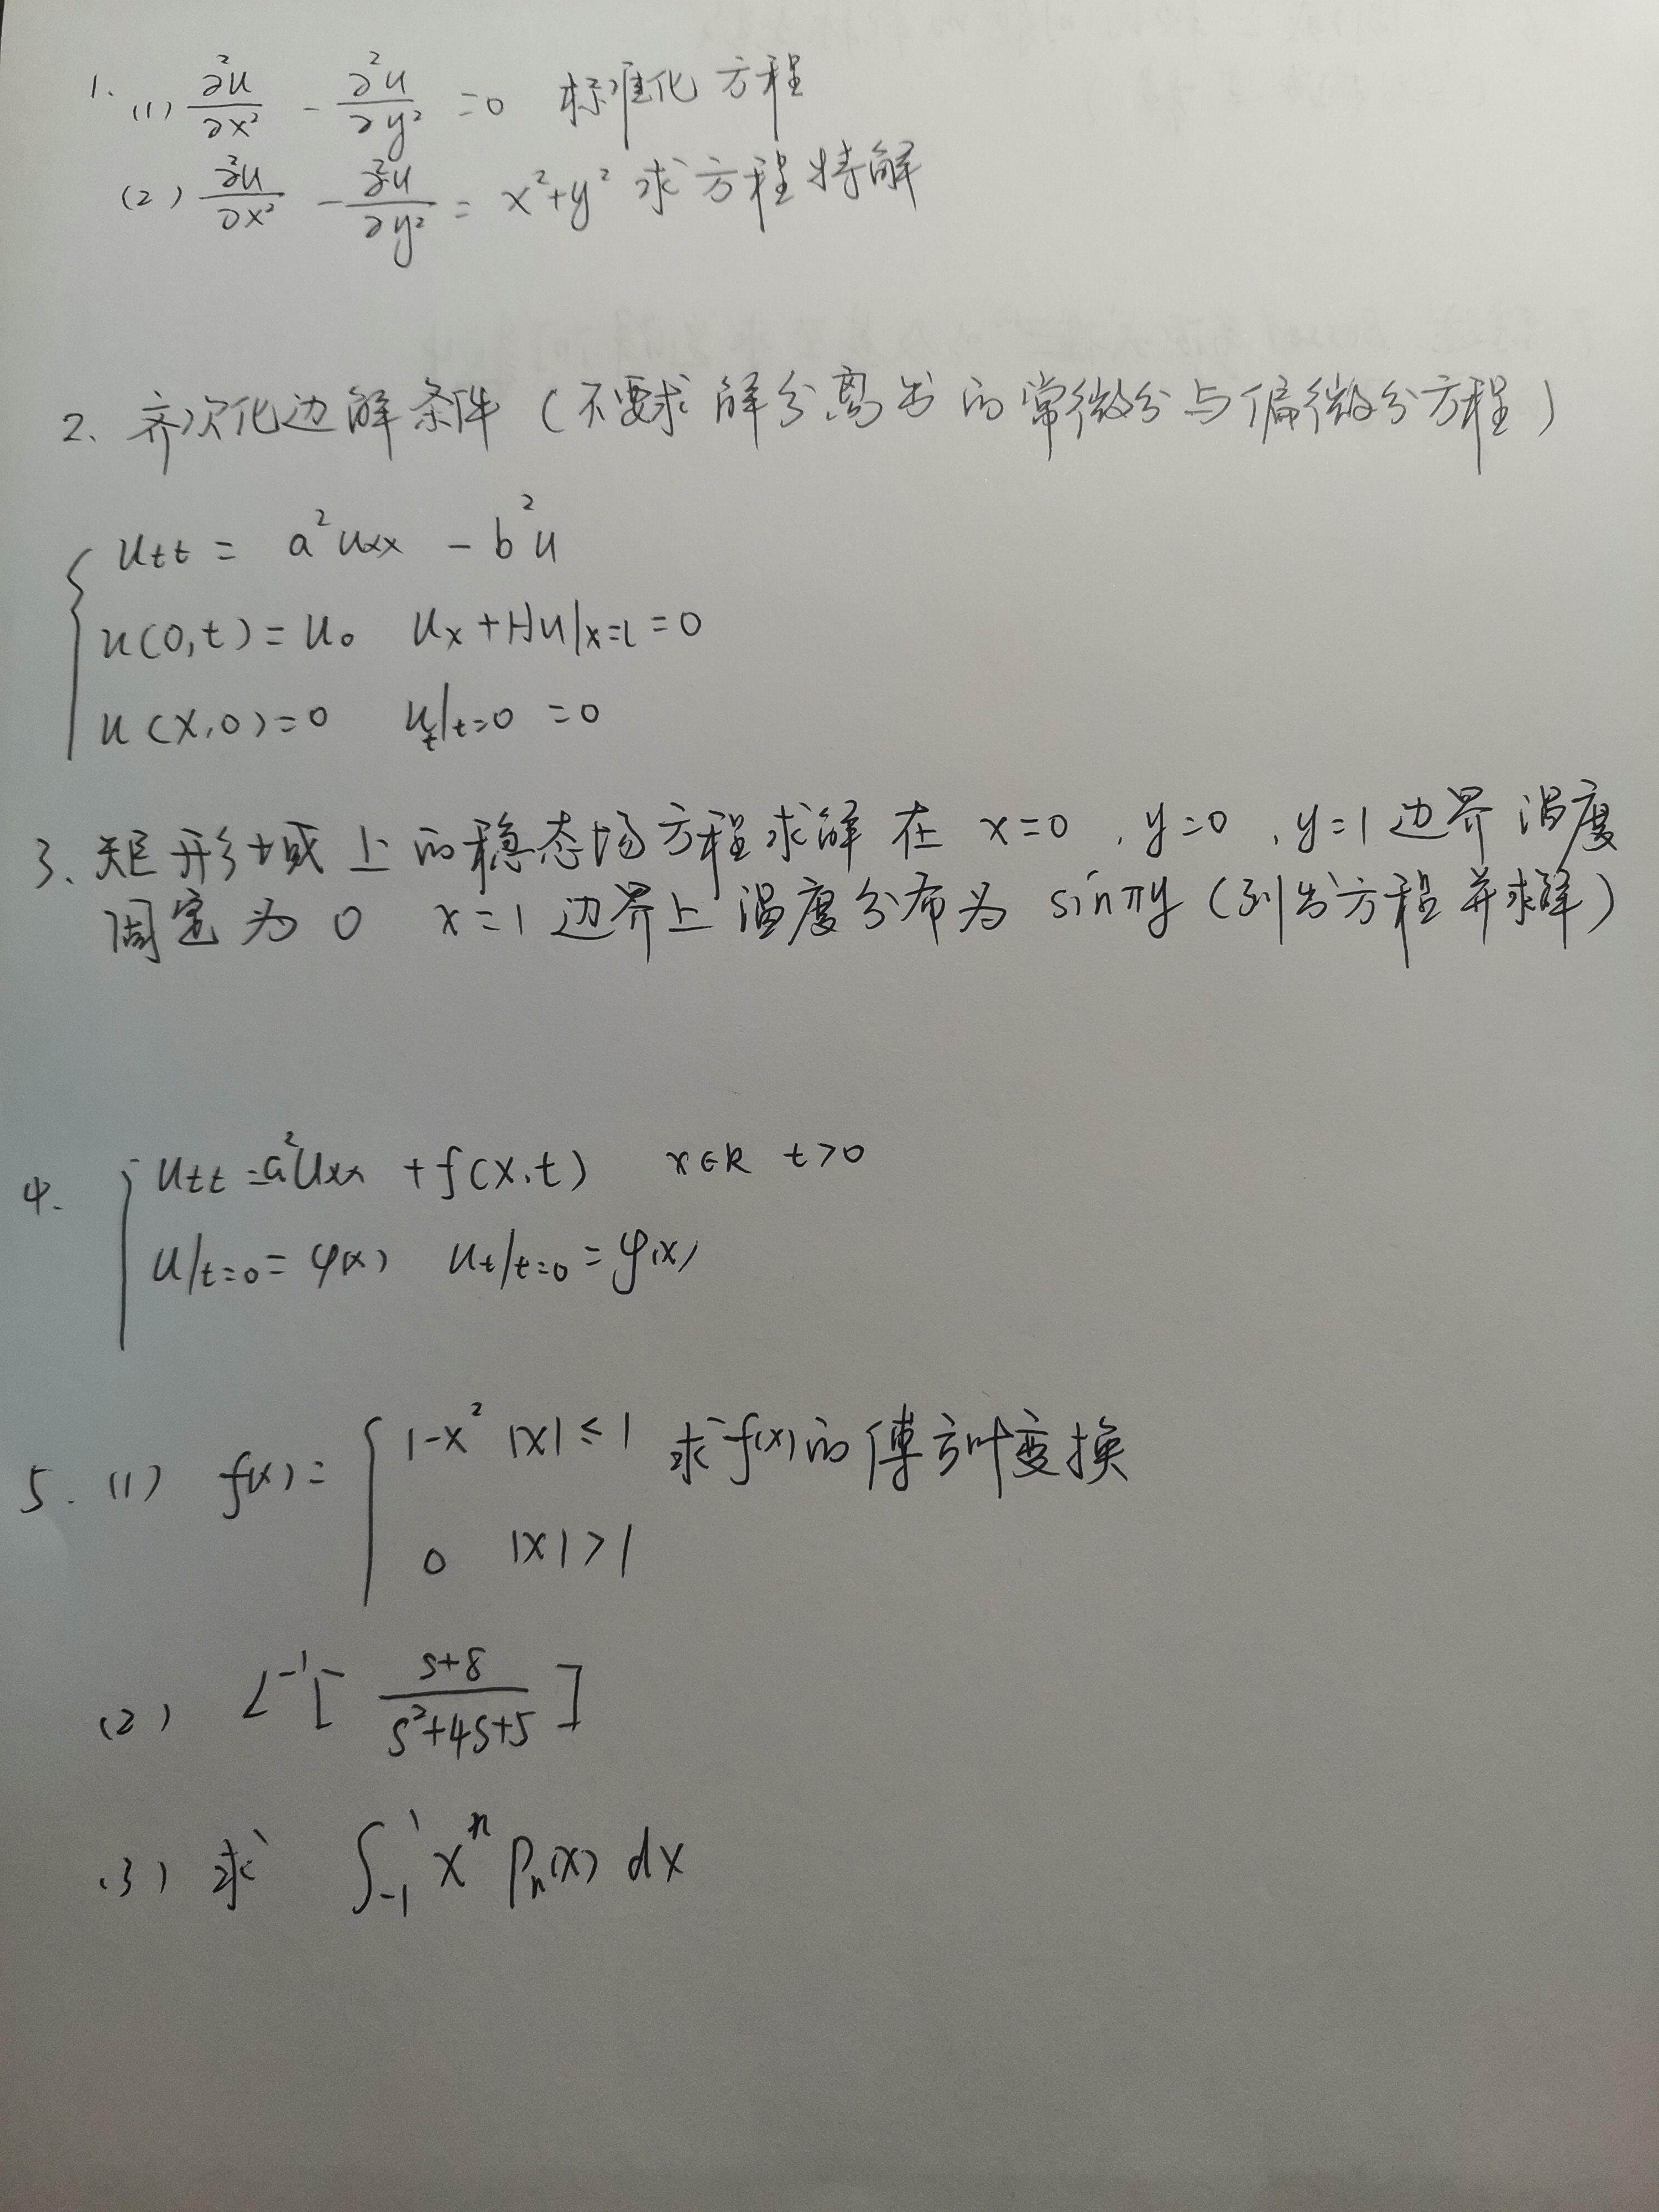 1. (1) ∂²u/∂x² - ∂²u/∂y² = 0 标准化方程
(2) ∂²u/∂x² - ∂²u/∂y² = x²+y² 求方程特解
2、齐次化边解条件(不要求解分离出的常微分与偏微分方程)
utt = a²uxx - b²u
u(0,t)=u₀ ux+Hu|x=l=0
u(x,0)=0 ut|t=0 =0
3、矩形域上的稳态场方程求解 在 x=0 , y=0 , y=1 边界温度
固定为0 x=1边界上温度分布为 sinπy (列出方程并求解)
4. utt=a²uxx +f(x,t) x∈R t>0
u|t=0=φ(x) ut|t=0=φ(x)
5. (1) f(x)= { 1-x² |x|≤1 求f(x)的傅立叶变换
0 |x|>1
(2) L⁻¹[ (s+8)/(s²+4s+5) ]
(3) 求 ∫₋₁¹ xⁿ Pn(x) dx